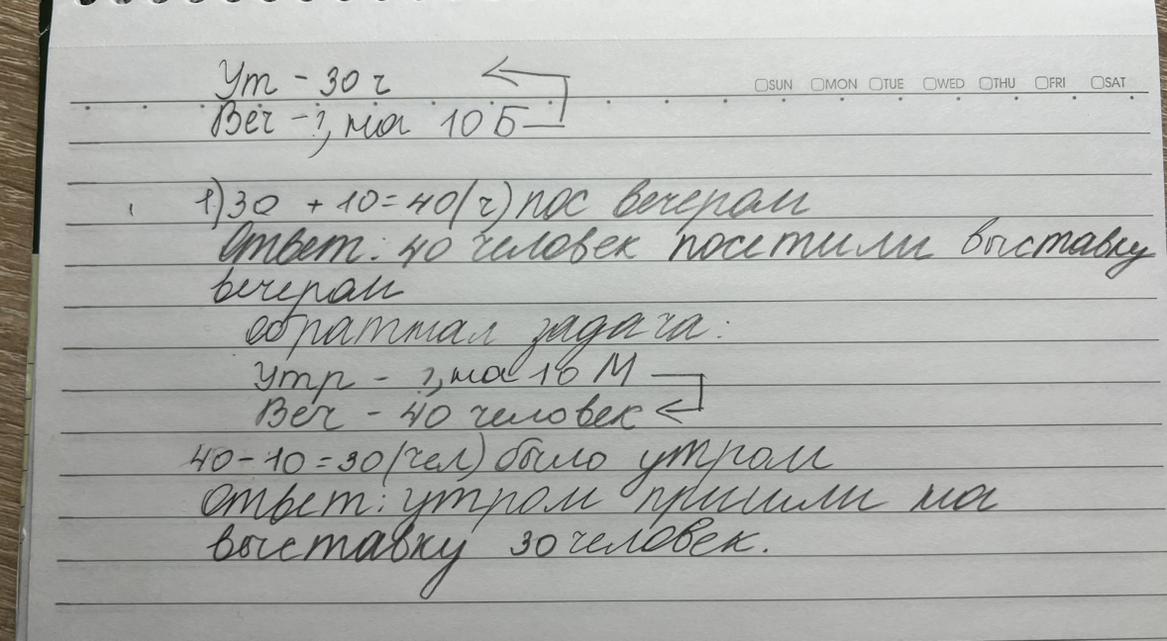 SUN MON TUE WED THU FRI SAT
Ут - 30 ч
Веч -?, на 10 Б
1) 30 + 10 = 40 (ч) пос вечером
Ответ: 40 человек посетили выставку
вечером
обратная задача:
Утр - ?, на 10 М
Веч - 40 человек
40 - 10 = 30 (чел) было утром
Ответ: утром пришли на
выставку 30 человек.